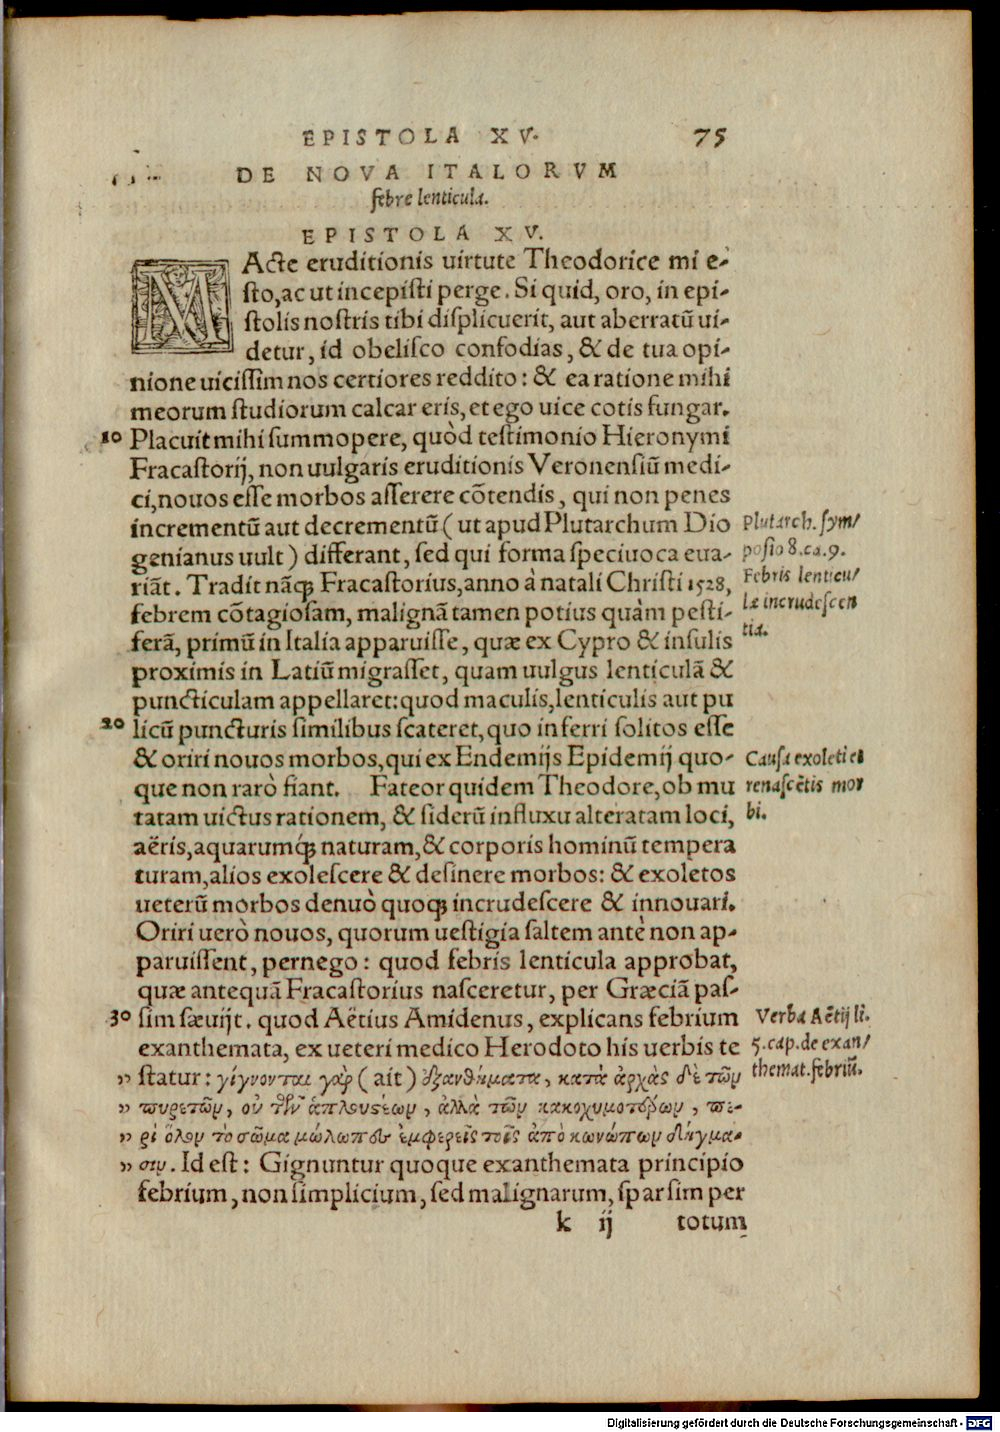 EPISTOLA XV. 75
DE NOVA ITALORVM
febre lenticula.
EPISTOLA XV.
MActe eruditionis uirtute Theodorice mi e-
sto, ac ut incepisti perge. Si quid, oro, in epi-
stolis nostris tibi displicuerit, aut aberratũ ui-
detur, id obelisco confodias, & de tua opi-
nione uicissim nos certiores reddito: & ea ratione mihi
meorum studiorum calcar eris, et ego uice cotis fungar.
10 Placuit mihi summopere, quòd testimonio Hieronymi
Fracastorij, non uulgaris eruditionis Veronensiũ medi-
ci, nouos esse morbos asserere cõtendis, qui non penes
incrementũ aut decrementũ (ut apud Plutarchum Dio
genianus uult) differant, sed qui forma speciuoca eua-
riãt. Tradit nãq; Fracastorius, anno à natali Christi 1528,
febrem cõtagiosam, malignã tamen potius quàm pesti-
ferã, primũ in Italia apparuisse, quæ ex Cypro & insulis
proximis in Latiũ migrasset, quam uulgus lenticulã &
puncticulam appellaret: quod maculis, lenticulis aut pu
20 licũ puncturis similibus scateret, quo inferri solitos esse
& oriri nouos morbos, qui ex Endemijs Epidemij quo-
que non rarò fiant. Fateor quidem Theodore, ob mu
tatam uictus rationem, & siderũ influxu alteratam loci,
aëris, aquarumq́; naturam, & corporis hominũ tempera
turam, alios exolescere & desinere morbos: & exoletos
ueterũ morbos denuò quoq; incrudescere & innouari.
Oriri uerò nouos, quorum uestigia saltem antè non ap-
paruissent, pernego: quod febris lenticula approbat,
quæ antequã Fracastorius nasceretur, per Græciã pas-
30 sim sæuijt. quod Aëtius Amidenus, explicans febrium
exanthemata, ex ueteri medico Herodoto his uerbis te
„ statur: γίγνονται γὰρ (ait) ἐξανθήματα, κατὰ ἀρχὰς δὲ τῶν
„ πυρετῶν, οὐ τῶν ἁπλουστέρων, ἀλλὰ τῶν κακοχυμοτέρων, πε-
„ ρὶ ὅλον τὸ σῶμα μώλωπες ἐμφερεῖς τοῖς ἀπὸ κωνώπων δήγμα-
„ σιν. Id est: Gignuntur quoque exanthemata principio
febrium, non simplicium, sed malignarum, sparsim per
k ij totum
Plutarch. sym/
posio 8. ca. 9.
Febris lenticu/
læ incrudescen
tia.
Causa exoleti et
renascẽtis mor
bi.
Verba Aëtij li.
5. cap. de exan/
themat. febriũ.
Digitalisierung gefördert durch die Deutsche Forschungsgemeinschaft - DFG